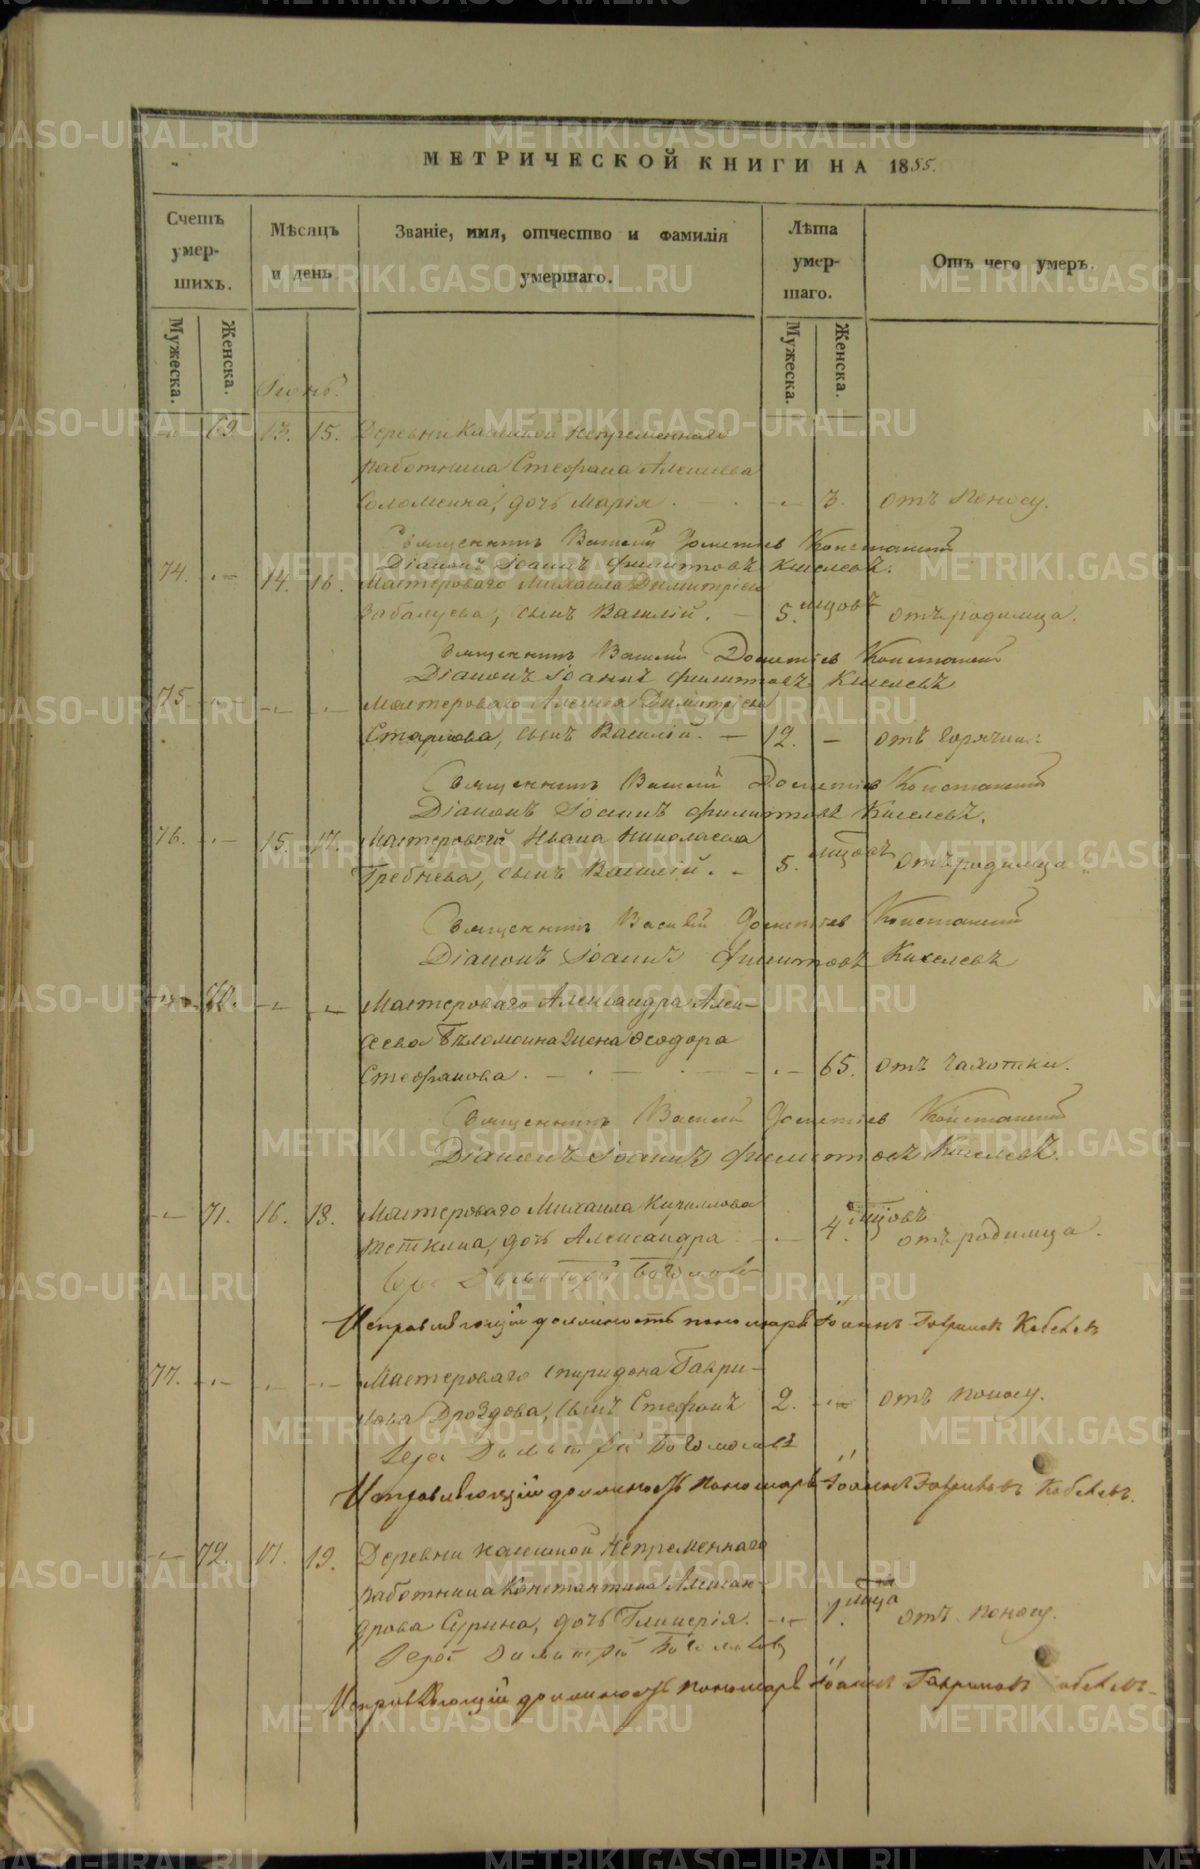 МЕТРИЧЕСКОЙ КНИГИ НА 1855.
Счетъ умершихъ.
Мѣсяцъ и день
Званіе, имя, отчество и фамилія умершаго.
Лѣта умершаго.
Отъ чего умеръ.
Мужеска.
Женска.
Мужеска.
Женска.
69. 13. 15. Деревни непременнаго
работника Стефана
дочь Марія 3. отъ поносу.
Священникъ Василій Дометіев Констанскій
Діаконъ Іоаннъ Филиповъ Киселевъ.
74. 14. 16. Мастероваго Михаила Димитріева
сынъ Василій. 5. мцовъ отъ родимца.
Священникъ Василій Дометіев Констанскій
Діаконъ Іоаннъ Филиповъ Киселевъ
75. Мастероваго Димитріева
сынъ Василій. 12. отъ горячки.
Священникъ Василій Дометіев Констанскій
Діаконъ Іоаннъ Филиповъ Киселевъ.
76. 15. 17. Мастероваго Ивана Николаева
Гребнева, сынъ Василій. 5. мцовъ отъ родимца.
Священникъ Василій Дометіев Констанскій
Діаконъ Іоаннъ Филиповъ Киселевъ
70. Мастероваго Александра Алек-
сеева жена Ѳеодора
Стефанова. 65. отъ чахотки.
Священникъ Василій Дометіев Констанскій
Діаконъ Іоаннъ Филиповъ Киселевъ.
71. 16. 18. Мастероваго Михаила Кирилова
дочь Александра 4. мцовъ отъ родимца.
Исправляющій должность пономаря Іоаннъ Гавриловъ
77. Мастероваго Спиридона Гаври-
лова Дроздова, сынъ Стефанъ 2. отъ поносу.
Іерей Димитрій Богомоловъ
Исправляющій должность пономаря Іоаннъ Гавриловъ
72. 17. 19. Деревни непременнаго
работника Константина Алексан-
дрова Сурина, дочь Гликерія. 1 мца отъ поносу.
Іерей Димитрій Богомоловъ
Исправляющій должность пономаря Іоаннъ Гавриловъ
METRIKI.GASO-URAL.RU